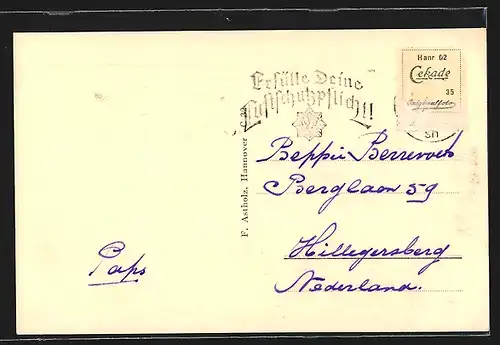 Erfülle Deine
Luftschutzpflicht!!
Hanr 62
Cekade
35
Originalfoto
SH
F. Astholz, Hannover
Beppie
Berglaan 59
Hillegersberg
Nederland.
Paps